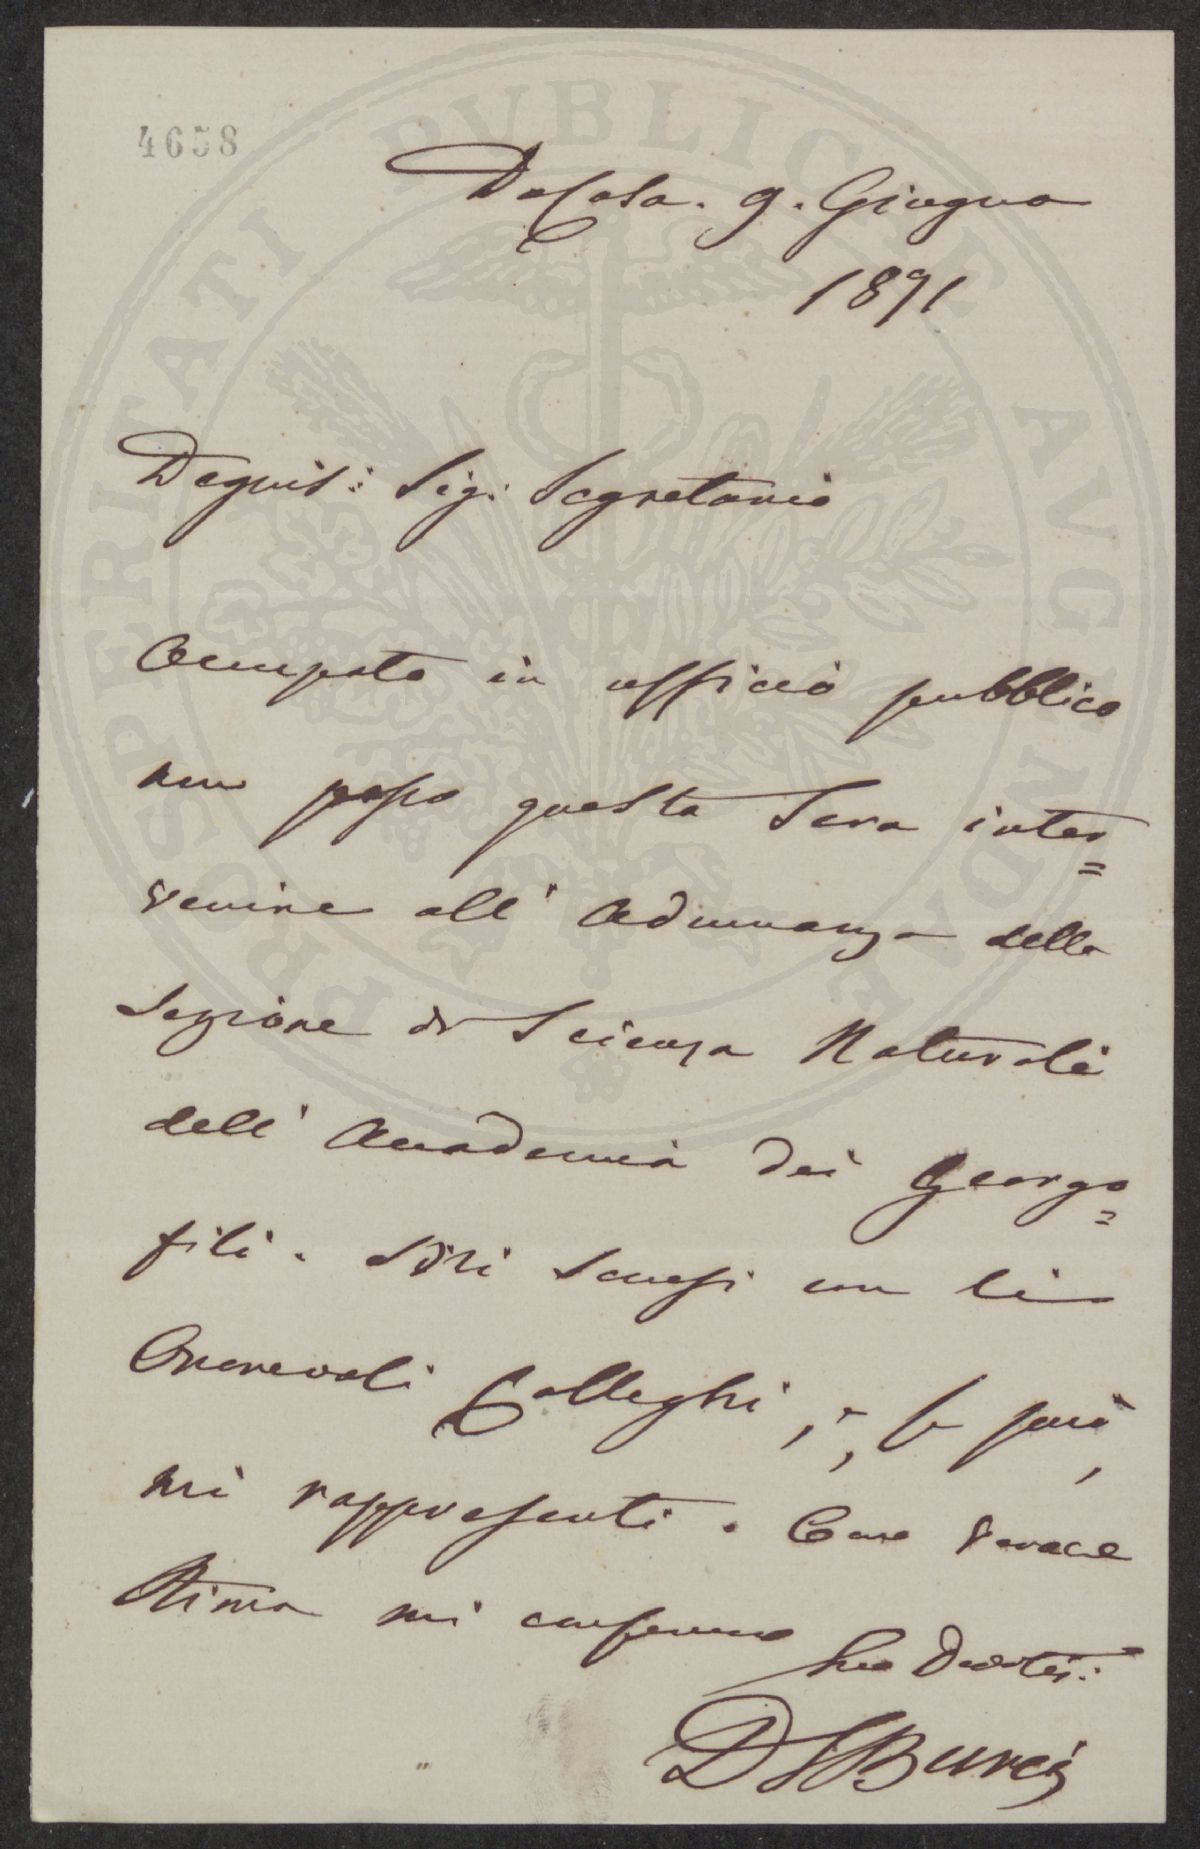 4658
Da Casa. 9. Giugno
1891
Degnis: Sig. Segretario
Occupato in ufficio pubblico
non posso questa sera inter=
venire all' Adunanza della
Sezione di Scienza Naturali
dell' Accademia dei Georgo=
fili. Mi scusi con li
Onorevoli Colleghi, e, se può,
mi rappresenti. Con verace
Stima mi confermo
Suo Devotis:
D Burci
PROSPERITATI PVBLICAE AVGENDAE